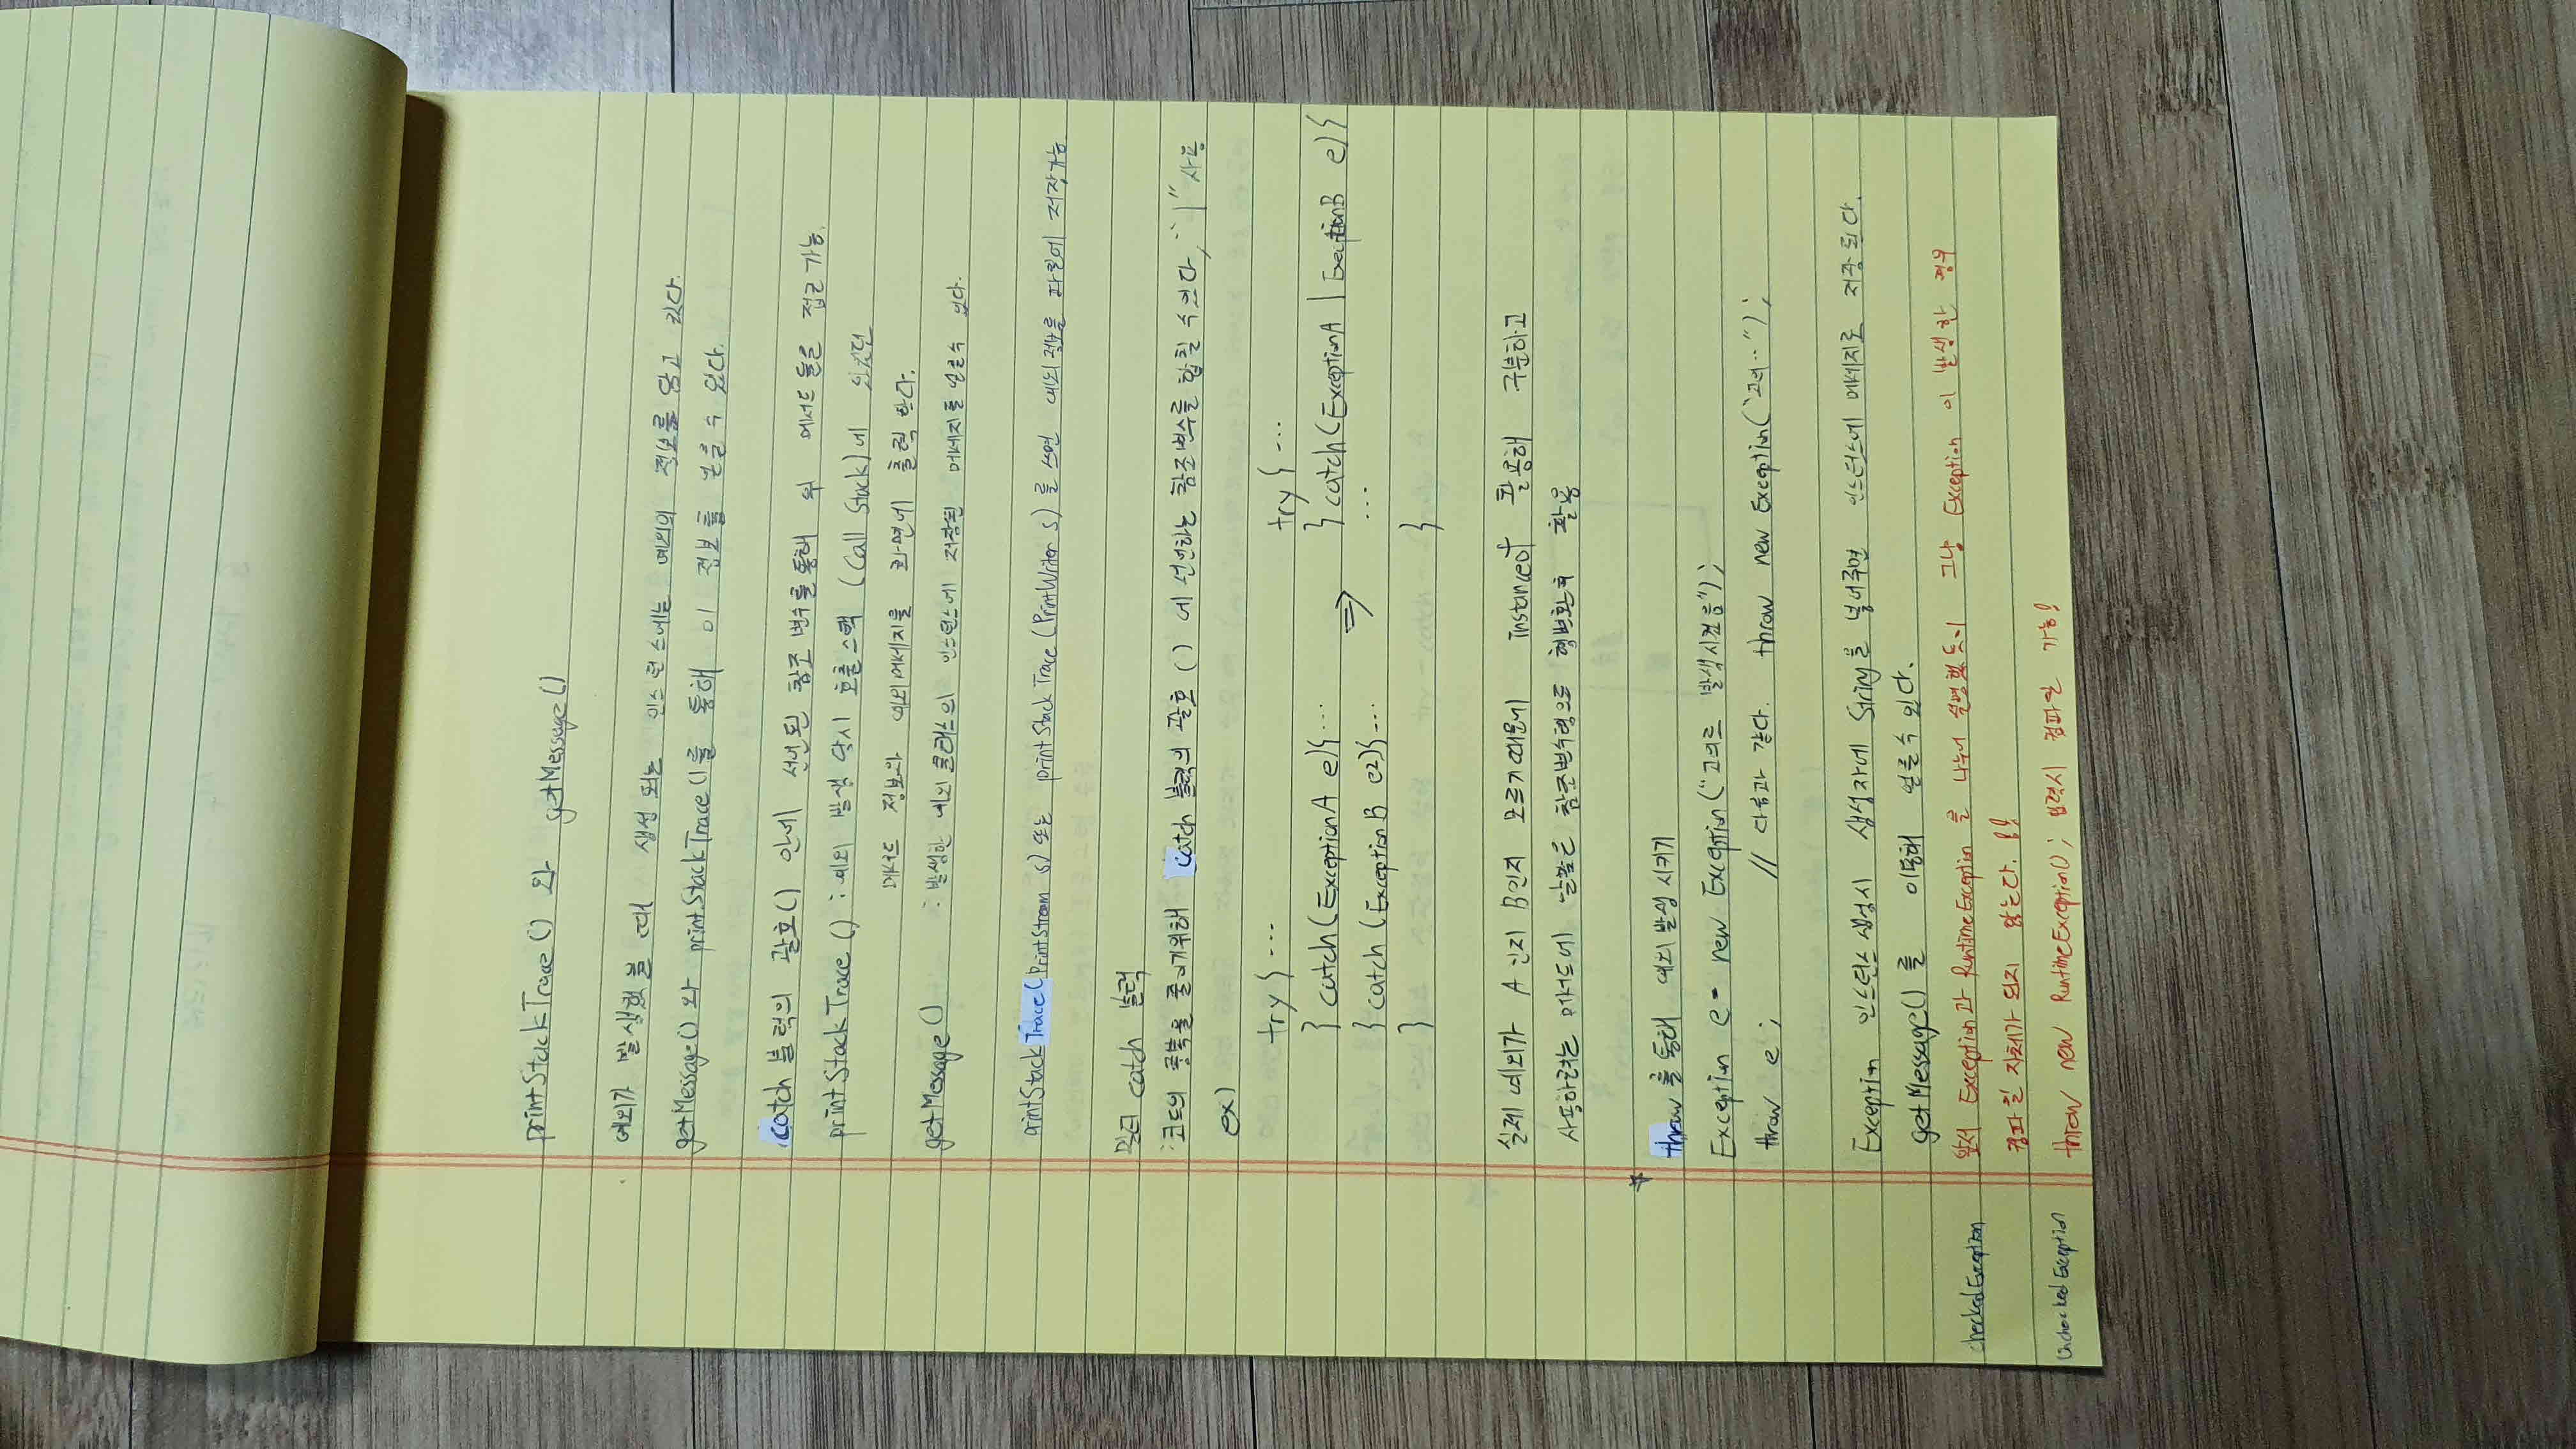 printStackTrace() 와 getMessage()
예외가 발생했을 때 생성 되는 인스턴스에는 예외의 정보를 담고 있다.
getMessage() 와 printStackTrace()를 통해 이 정보를 얻을 수 있다.
catch 블럭의 괄호() 안에 선언된 참조 변수를 통해 위 메서드 들을 접근 가능.
printStackTrace() : 예외 발생 당시 호출스택 (Call Stack)에 있었던
메서드 정보와 예외메세지를 화면에 출력 한다.
getMessage() : 발생한 예외 클래스의 인스턴스에 저장된 메세지를 얻을수 있다.
printStackTrace(PrintStream s) 또는 printStackTrace(PrintWriter s) 를 쓰면 예외정보를 파일에 저장가능
멀티 catch 블럭
: 코드의 중복을 줄이기위해 catch 블럭의 괄호 () 에 선언하는 참조변수를 합칠 수 있다, "|" 사용
ex)
try { ...
} catch(ExceptionA e){ ...
} catch (ExceptionB e2){ ...
}
⇒
try { ...
} catch(ExceptionA | ExecptionB e){
...
}
실제 예외가 A인지 B인지 모르기때문에 instanceof 활용해 구분하고
사용하려는 메서드에 알맞은 참조변수형으로 형변환후 활용
☆
throw 를 통해 예외 발생 시키기
Exception e = new Exception("고의로 발생시켰음");
throw e; // 다음과 같다. throw new Exception("고의..");
Exception 인스턴스 생성시 생성자에 String을 넣어주면 인스턴스에 메세지로 저장 된다.
getMessage() 를 이용해 얻을수 있다.
checkedException 앞서 Exception과 RuntimeException 을 나누어 설명했듯이 그냥 Exception 이 발생 한 경우
컴파일 자체가 되지 않는다. !!
UncheckedException throw new RuntimeException(); 입력시 컴파일 가능!